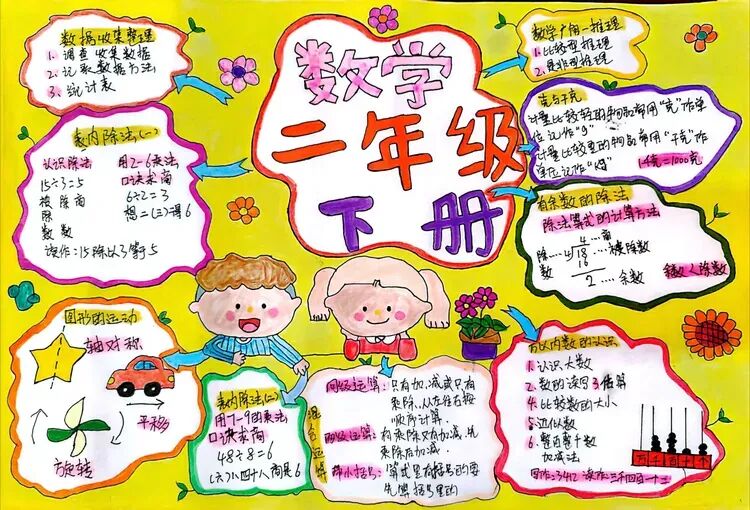 数学
二年级
下册
数据收集整理
1、调查收集数据
2、记录数据方法
3、统计表
数学广角—推理
1、比较型推理
2、是非型推理
表内除法(一)
认识除法
15÷3=5
被除商
除
数数
读作:15除以3等于5
用2-6乘法
口诀求商
6÷2=3
想=(三)得6
克与千克
计量比较轻的物品常用“克”作单
位记作“g”
计量比较重的物品常用“千克”作
单位记作“kg”
1千克=1000克
有余数的除法
除法算式的计算方法
4…商
除…4)18…被除数
数
16
2…余数
余数<除数
图形的运动
轴对称
平移
旋转
表内除法(二)
用7-9的乘法
口诀求商
48÷8=6
(六)八四十八商是6
混合运算
同级运算:只有加、减或只有
乘除,从左往右按
顺序计算.
两级运算:有乘除又有加减,先
乘除后加减.
带小括号:算式里有括号的要
先算括号里的
万以内数的认识
1、认识大数
2、数的读写
3、估算
4、比较数的大小
5、近似数
6、整百整千数
加减法
万千百十个
写作:3412 读作:三千四百一十二